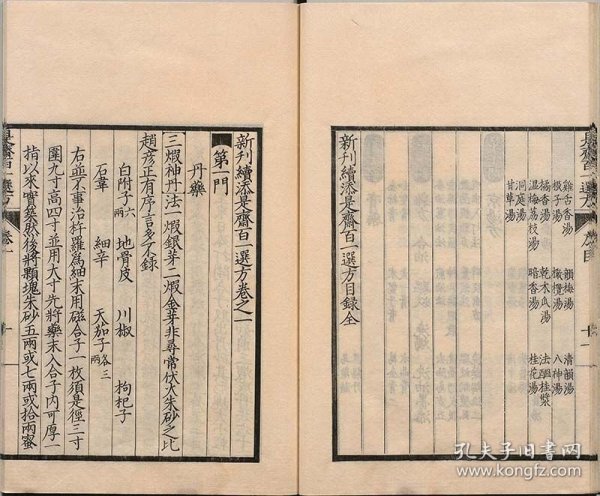 雞舌香湯 韻梅湯 清韻湯
橄欖湯 八神湯
橘香湯 乾木瓜湯 法醞桂漿
溫梅荔枝湯 暗香湯 桂花湯
洞庭湯
甘草湯
新刊續添是齋百一選方目録全
新刊續添是齋百一選方卷之一
第一門
丹藥
三煆神丹法一煆銀芽二煆金芽非尋常伏火朱砂之比
趙彦正有序言多不録
白附子六兩 地骨皮 川椒 枸杞子
石韋 細辛 天茄子各三兩
右並不事治杵羅為細末用磁合子一枚須是徑三寸
圍九寸高四寸並用大寸先將藥末入合子内可厚一
指以來實築然後將顆塊朱砂五兩或七兩或拾兩蜜
孔夫子旧书网
www.kongfz.com